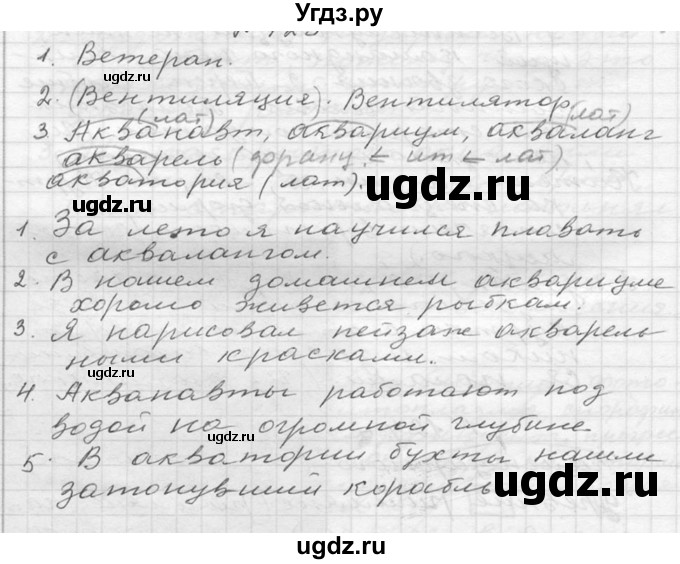 Угдз.ру
1. Ветеран.
ugdz.ru
2. (Вентиляция). Вентилятор
(лат) (лат)
3 Акванавт, аквариум, акваланг
акварель ( ← ит ← лат)
акватория (лат).
ugdz.ru
ugdz.ru
1. За лето я научился плавать
с аквалангом.
2. В нашем домашнем аквариуме
хорошо живется рыбкам.
ugdz.ru
3. Я нарисовал пейзаж акварель
ными красками.
ugdz.ru
4. Акванавты работают под
водой на огромной глубине
ugdz.ru
5. В акватории бухты нашли
затонувший корабль
ugdz.ru
ugdz.ru